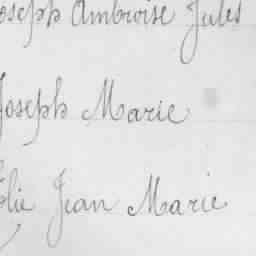 Joseph Ambroise Jules
Joseph Marie
Élie Jean Marie